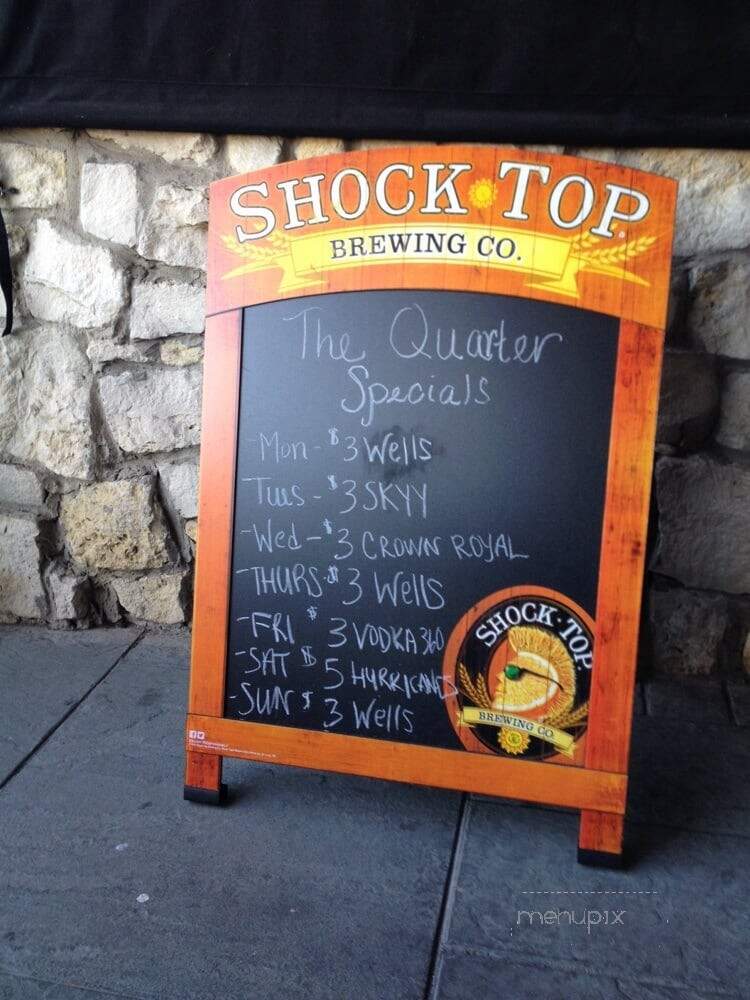 SHOCK TOP
BREWING CO.
The Quarter
Specials
-Mon - $3 Wells
-Tues - $3 SKYY
-Wed - $3 CROWN ROYAL
-THURS $3 Wells
-FRI $3 VODKA 360
-SAT $5 HURRICANES
-SUN $3 Wells
SHOCK TOP
BREWING CO.
menupix